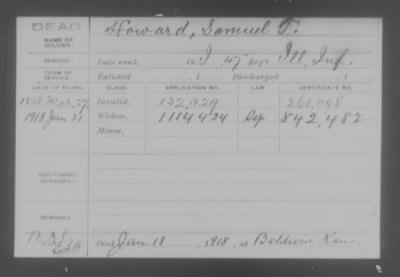 DEAD
NAME OF SOLDIER: Howard, Samuel T.
SERVICE: Late rank, Co. I, 47 Reg't Ill. Inf.
TERM OF SERVICE: Enlisted , 1 Discharged , 1
DATE OF FILING. CLASS. APPLICATION NO. LAW. CERTIFICATE NO.
1868 Mar. 27 Invalid, 132,929 260,098
1918 Jan 31 Widow, 1114424 842,482
Minor,
ADDITIONAL SERVICES:
REMARKS:
Died Jan 18, 1918, at Baldwin Kan